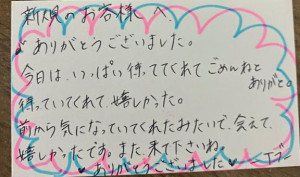 新規のお客様へ
ありがとうございました。
今日は、いっぱい待っててくれてごめんねとありがと。
待っていてくれて、嬉しかった。
前から気になっていてくれたみたいで、会えて、
嬉しかったです。また、来て下さいね。
ありがとうございました